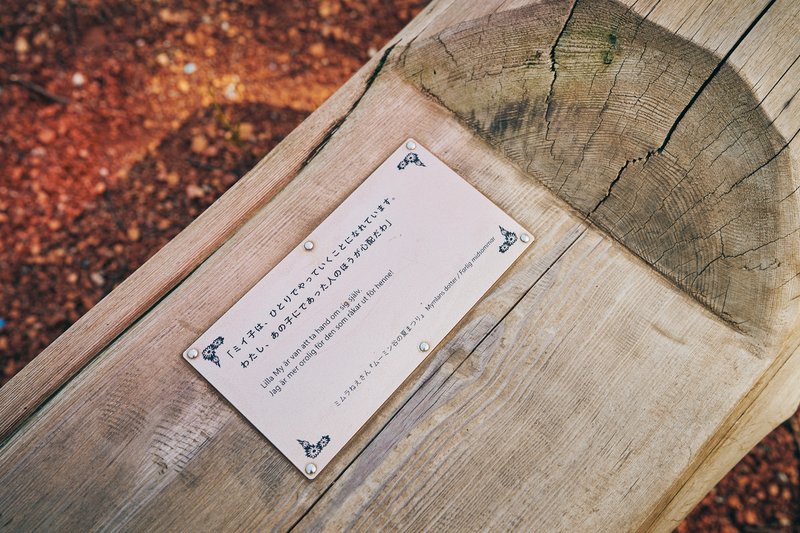 「ミイ子は、ひとりでやっていくことになれています。
わたし、あの子にであった人のほうが心配だわ」
Lilla My är van att ta hand om sig själv.
Jag är mer orolig för den som råkar ut för henne!
ミムラねえさん『ムーミン谷の夏まつり』 Mymlans dotter / Farlig midsommar